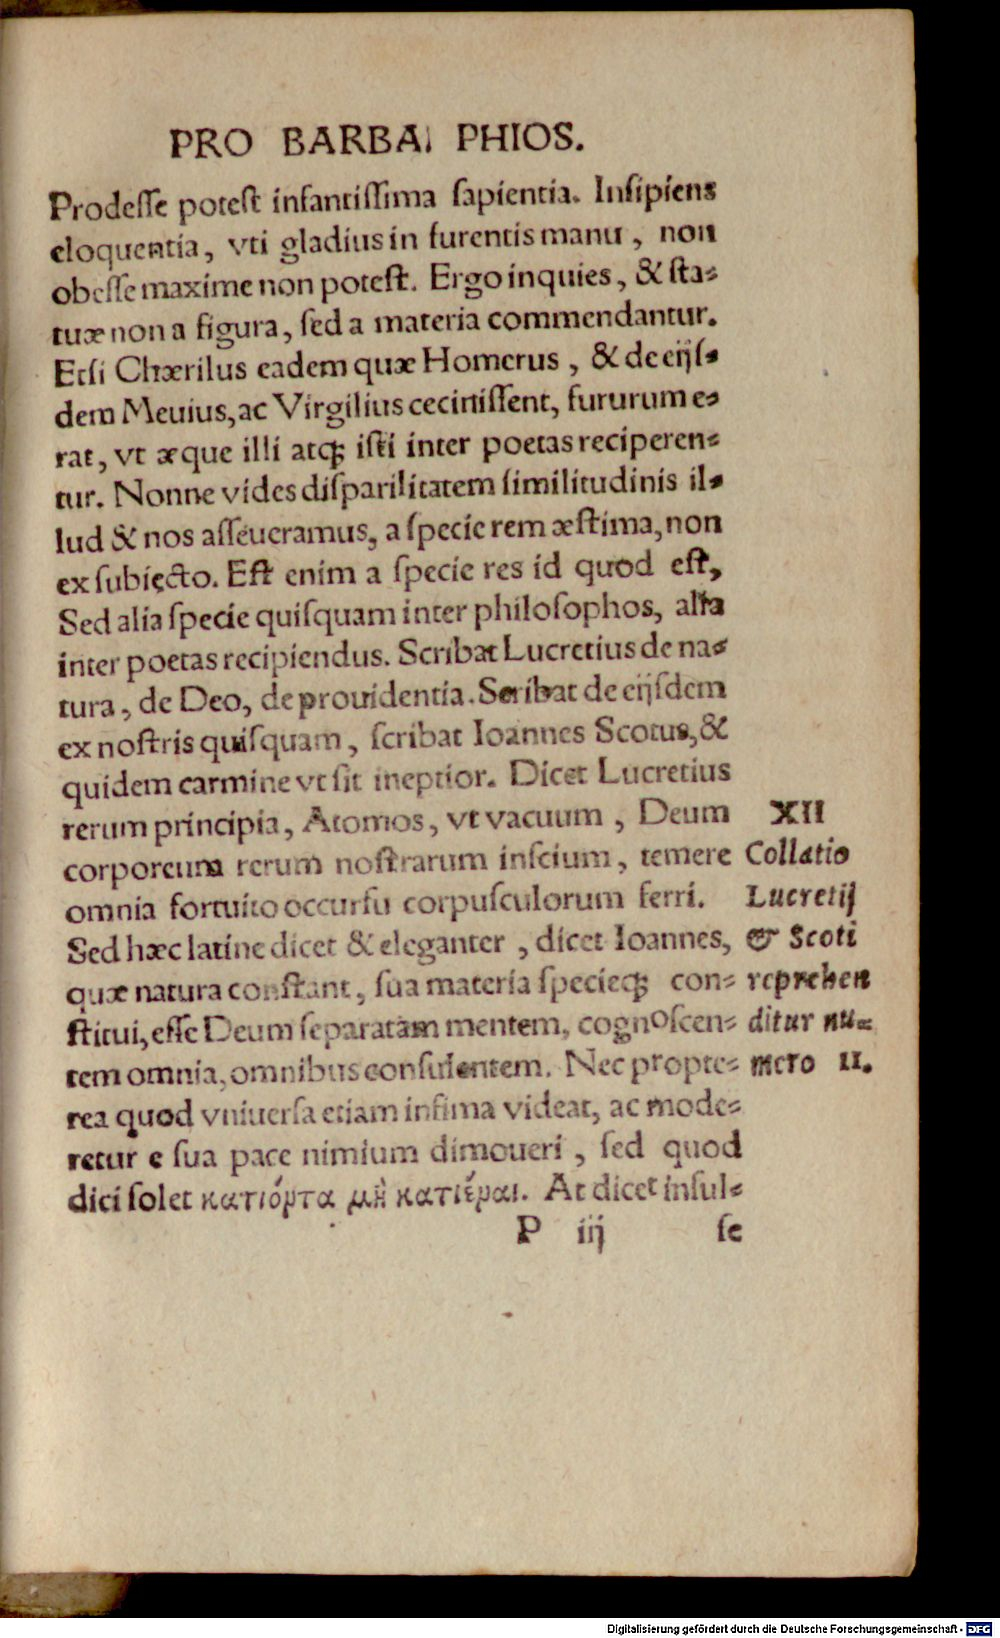 PRO BARBA. PHIOS.
Prodeſſe poteſt infantiſſima ſapientia. Inſipiens
eloquentia, vti gladius in furentis manu, non
obeſſe maxime non poteſt. Ergo inquies, & ſta-
tuæ non a figura, ſed a materia commendantur.
Etſi Chærilus eadem quæ Homerus, & de eijſ-
dem Meuius, ac Virgilius ceciniſſent, fururum e-
rat, vt æque illi atq; iſti inter poetas reciperen-
tur. Nonne vides diſparilitatem ſimilitudinis il-
lud & nos aſſeueramus, a ſpecie rem æſtima, non
ex ſubiecto. Eſt enim a ſpecie res id quod eſt,
Sed alia ſpecie quiſquam inter philoſophos, alia
inter poetas recipiendus. Scribat Lucretius de na-
tura, de Deo, de prouidentia. Scribat de eijſdem
ex noſtris quiſquam, ſcribat Ioannes Scotus, &
quidem carmine vt ſit ineptior. Dicet Lucretius
rerum principia, Atomos, vt vacuum, Deum
corporeum rerum noſtrarum inſcium, temere
omnia fortuito occurſu corpuſculorum ferri.
Sed hæc latine dicet & eleganter, dicet Ioannes,
quæ natura conſtant, ſua materia ſpecieq; con-
ſtitui, eſſe Deum ſeparatam mentem, cognoſcen-
tem omnia, omnibus conſulentem. Nec propte-
rea quod vniuerſa etiam infima videat, ac mode-
retur e ſua pace nimium dimoueri, ſed quod
dici ſolet κατιόρτα μὴ κατιέραι. At dicet inſul-
P iij ſe
XII
Collatio
Lucretij
& Scoti
reprehen
ditur nu-
mero 11.
Digitalisierung gefördert durch die Deutsche Forschungsgemeinschaft - DFG